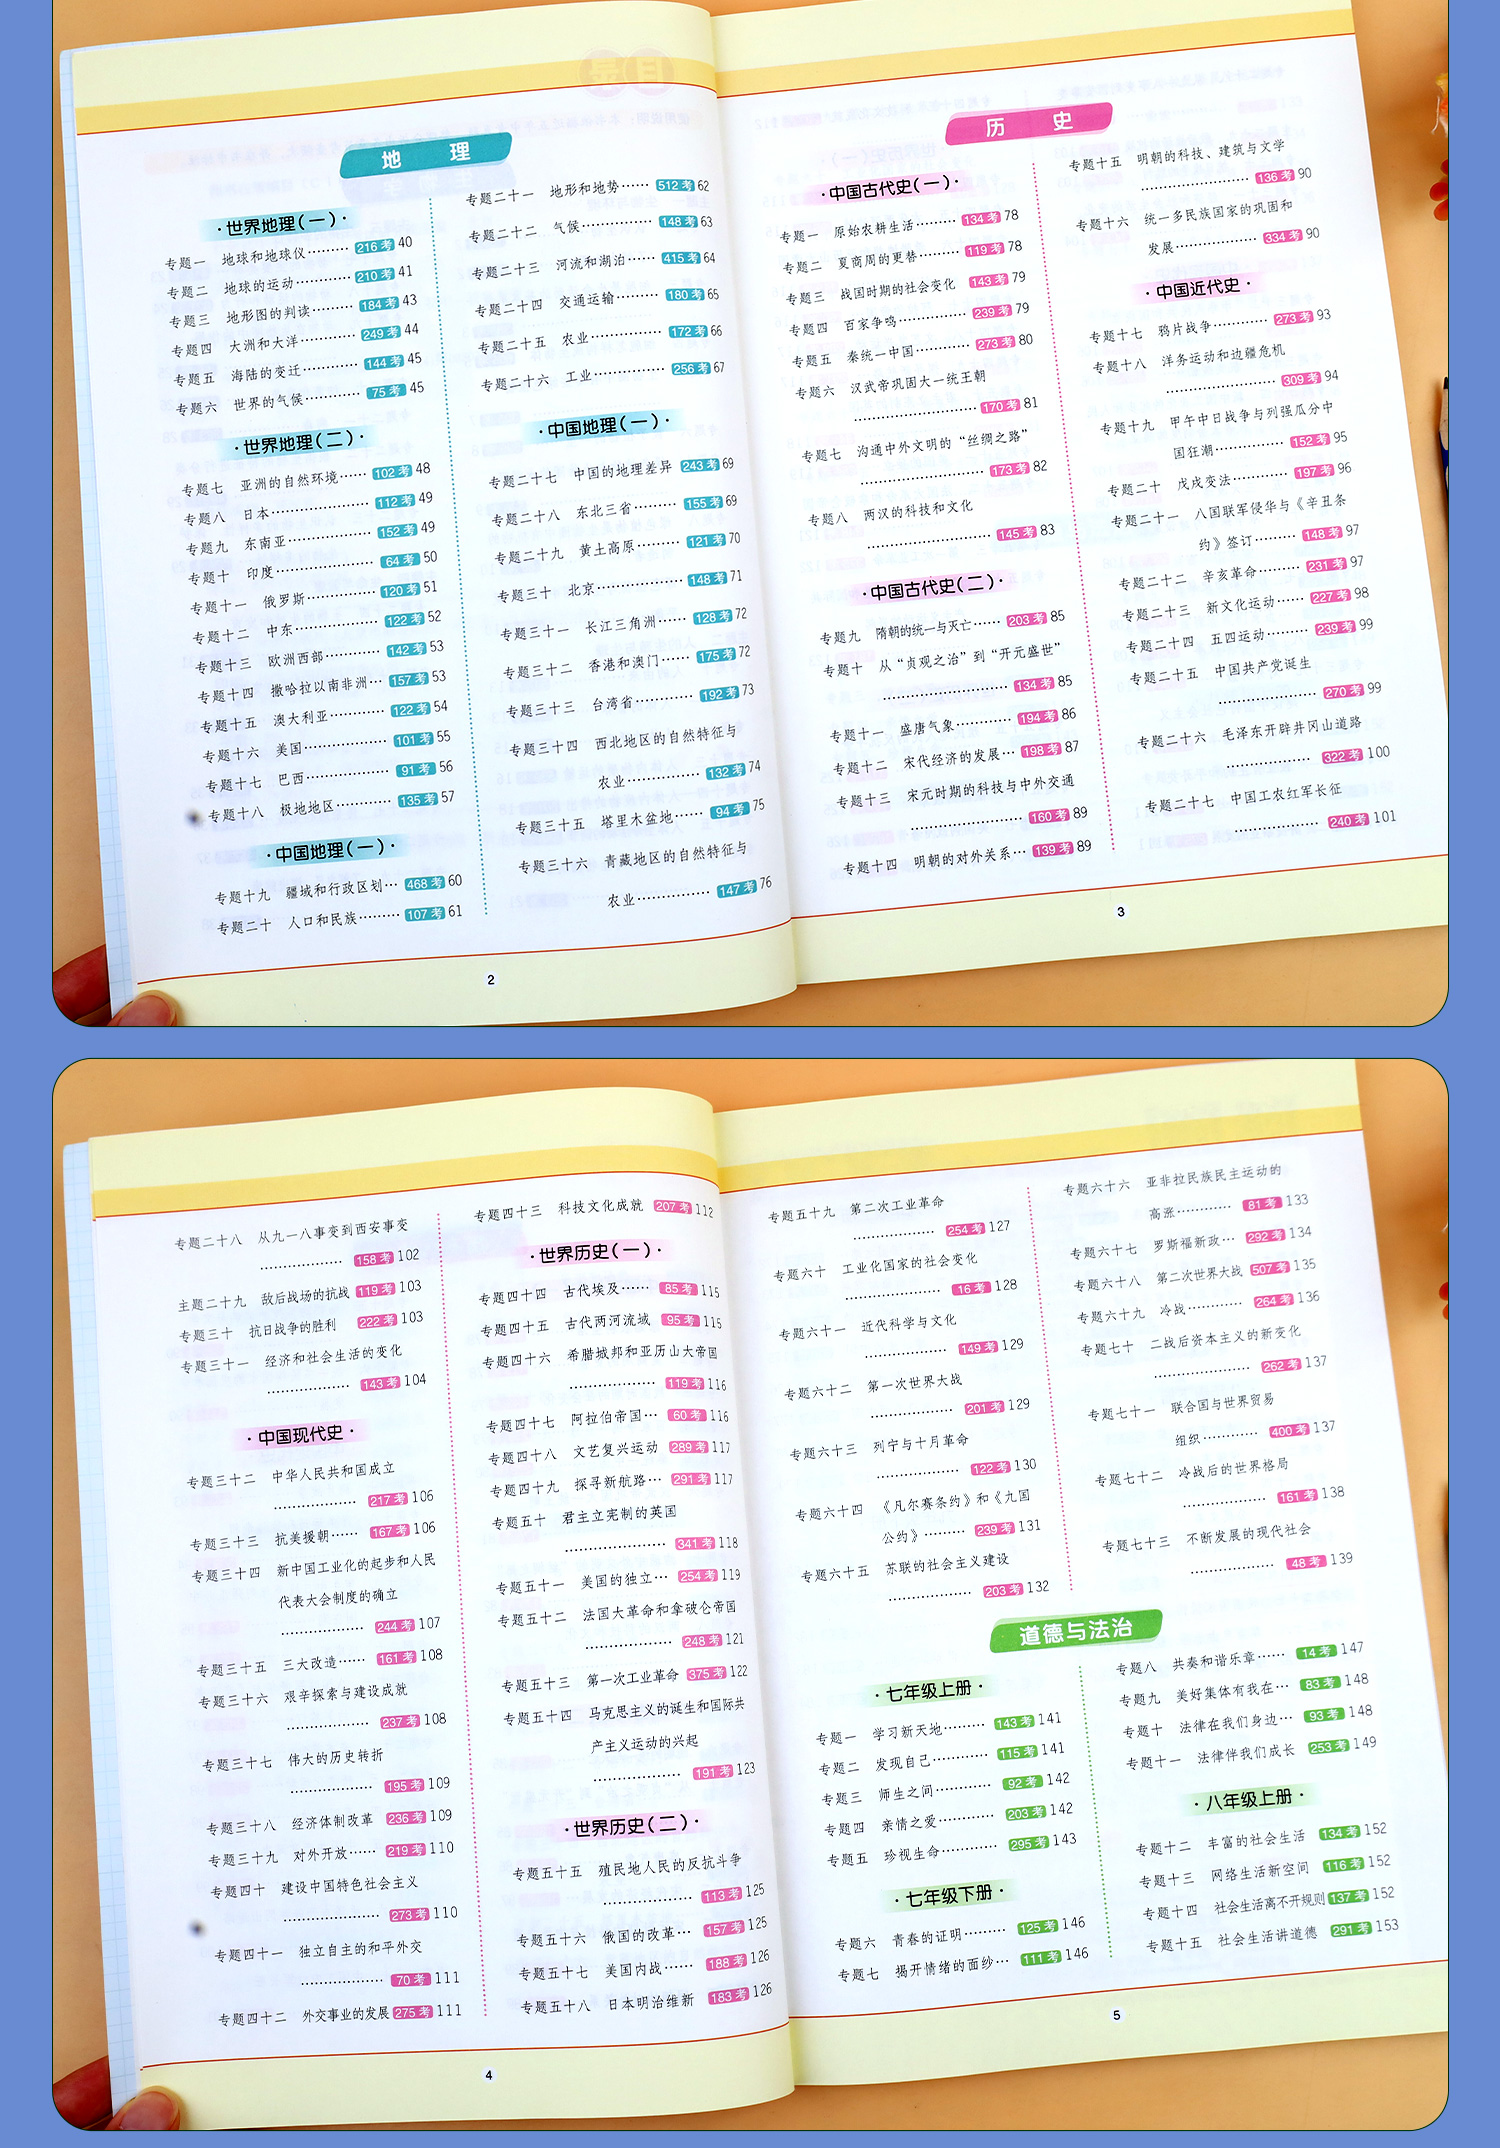 地 理
·世界地理(一)·
专题一 地球和地球仪……… 216 考 40
专题二 地球的运动……… 210 考 41
专题三 地形图的判读…… 184 考 43
专题四 大洲和大洋……… 249 考 44
专题五 海陆的变迁……… 144 考 45
专题六 世界的气候……… 75 考 45
·世界地理(二)·
专题七 亚洲的自然环境…… 102 考 48
专题八 日本……………… 112 考 49
专题九 东南亚…………… 152 考 49
专题十 印度……………… 64 考 50
专题十一 俄罗斯………… 120 考 51
专题十二 中东…………… 122 考 52
专题十三 欧洲西部……… 142 考 53
专题十四 撒哈拉以南非洲… 157 考 53
专题十五 澳大利亚……… 122 考 54
专题十六 美国…………… 101 考 55
专题十七 巴西…………… 91 考 56
专题十八 极地地区……… 135 考 57
·中国地理(一)·
专题十九 疆域和行政区划… 468 考 60
专题二十 人口和民族…… 107 考 61
专题二十一 地形和地势…… 512 考 62
专题二十二 气候………… 148 考 63
专题二十三 河流和湖泊…… 415 考 64
专题二十四 交通运输…… 180 考 65
专题二十五 农业………… 172 考 66
专题二十六 工业………… 256 考 67
·中国地理(一)·
专题二十七 中国的地理差异 243 考 69
专题二十八 东北三省…… 155 考 69
专题二十九 黄土高原…… 121 考 70
专题三十 北京…………… 148 考 71
专题三十一 长江三角洲…… 128 考 72
专题三十二 香港和澳门…… 175 考 72
专题三十三 台湾省……… 192 考 73
专题三十四 西北地区的自然特征与
农业……………… 132 考 74
专题三十五 塔里木盆地…… 94 考 75
专题三十六 青藏地区的自然特征与
农业……………… 147 考 76
2
历 史
·中国古代史(一)·
专题一 原始农耕生活…… 134 考 78
专题二 夏商周的更替…… 119 考 78
专题三 战国时期的社会变化 143 考 79
专题四 百家争鸣………… 239 考 79
专题五 秦统一中国……… 273 考 80
专题六 汉武帝巩固大一统王朝
…………………… 170 考 81
专题七 沟通中外文明的“丝绸之路”
…………………… 173 考 82
专题八 两汉的科技和文化
…………………… 145 考 83
·中国古代史(二)·
专题九 隋朝的统一与灭亡…… 203 考 85
专题十 从“贞观之治”到“开元盛世”
…………………… 134 考 85
专题十一 盛唐气象……… 194 考 86
专题十二 宋代经济的发展… 198 考 87
专题十三 宋元时期的科技与中外交通
…………………… 160 考 89
专题十四 明朝的对外关系… 139 考 89
专题十五 明朝的科技、建筑与文学
…………………… 136 考 90
专题十六 统一多民族国家的巩固和
发展……………… 334 考 90
·中国近代史·
专题十七 鸦片战争……… 273 考 93
专题十八 洋务运动和边疆危机
…………………… 309 考 94
专题十九 甲午中日战争与列强瓜分中
国狂潮…………… 152 考 95
专题二十 戊戌变法……… 197 考 96
专题二十一 八国联军侵华与《辛丑条
约》签订……… 148 考 97
专题二十二 辛亥革命…… 231 考 97
专题二十三 新文化运动…… 227 考 98
专题二十四 五四运动…… 239 考 99
专题二十五 中国共产党诞生
………………… 270 考 99
专题二十六 毛泽东开辟井冈山道路
………………… 322 考 100
专题二十七 中国工农红军长征
………………… 240 考 101
3
专题二十八 从九一八事变到西安事变
……………… 158 考 102
主题二十九 敌后战场的抗战 119 考 103
专题三十 抗日战争的胜利 222 考 103
专题三十一 经济和社会生活的变化
……………… 143 考 104
·中国现代史·
专题三十二 中华人民共和国成立
……………… 217 考 106
专题三十三 抗美援朝…… 167 考 106
专题三十四 新中国工业化的起步和人民
代表大会制度的确立
……………… 244 考 107
专题三十五 三大改造…… 161 考 108
专题三十六 艰辛探索与建设成就
……………… 237 考 108
专题三十七 伟大的历史转折
……………… 195 考 109
专题三十八 经济体制改革 236 考 109
专题三十九 对外开放…… 219 考 110
专题四十 建设中国特色社会主义
……………… 273 考 110
专题四十一 独立自主的和平外交
……………… 70 考 111
专题四十二 外交事业的发展 275 考 111
专题四十三 科技文化成就 207 考 112
·世界历史(一)·
专题四十四 古代埃及…… 85 考 115
专题四十五 古代两河流域 95 考 115
专题四十六 希腊城邦和亚历山大帝国
……………… 119 考 116
专题四十七 阿拉伯帝国… 60 考 116
专题四十八 文艺复兴运动 289 考 117
专题四十九 探寻新航路… 291 考 117
专题五十 君主立宪制的英国
………………… 341 考 118
专题五十一 美国的独立… 254 考 119
专题五十二 法国大革命和拿破仑帝国
……………… 248 考 121
专题五十三 第一次工业革命 375 考 122
专题五十四 马克思主义的诞生和国际共
产主义运动的兴起
……………… 191 考 123
·世界历史(二)·
专题五十五 殖民地人民的反抗斗争
……………… 113 考 125
专题五十六 俄国的改革… 157 考 125
专题五十七 美国内战…… 188 考 126
专题五十八 日本明治维新 183 考 126
4
专题五十九 第二次工业革命
……………… 254 考 127
专题六十 工业化国家的社会变化
………………… 16 考 128
专题六十一 近代科学与文化
……………… 149 考 129
专题六十二 第一次世界大战
……………… 201 考 129
专题六十三 列宁与十月革命
……………… 122 考 130
专题六十四 《凡尔赛条约》和《九国
公约》……… 239 考 131
专题六十五 苏联的社会主义建设
……………… 203 考 132
专题六十六 亚非拉民族民主运动的
高涨………… 81 考 133
专题六十七 罗斯福新政… 292 考 134
专题六十八 第二次世界大战 507 考 135
专题六十九 冷战………… 264 考 136
专题七十 二战后资本主义的新变化
………………… 262 考 137
专题七十一 联合国与世界贸易
组织………… 400 考 137
专题七十二 冷战后的世界格局
……………… 161 考 138
专题七十三 不断发展的现代社会
……………… 48 考 139
道德与法治
·七年级上册·
专题一 学习新天地……… 143 考 141
专题二 发现自己………… 115 考 141
专题三 师生之间………… 92 考 142
专题四 亲情之爱………… 203 考 142
专题五 珍视生命………… 295 考 143
·七年级下册·
专题六 青春的证明……… 125 考 146
专题七 揭开情绪的面纱… 111 考 146
专题八 共奏和谐乐章…… 14 考 147
专题九 美好集体有我在… 83 考 148
专题十 法律在我们身边… 93 考 148
专题十一 法律伴我们成长 253 考 149
·八年级上册·
专题十二 丰富的社会生活 134 考 152
专题十三 网络生活新空间 116 考 152
专题十四 社会生活离不开规则 137 考 152
专题十五 社会生活讲道德 291 考 153
5